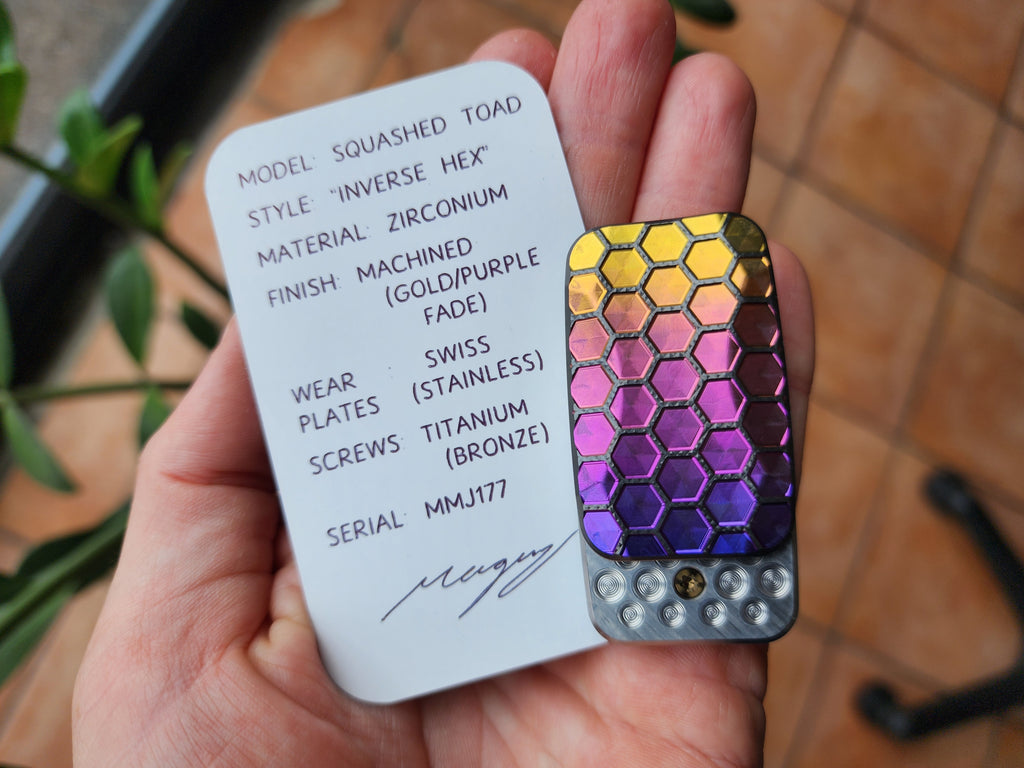 MODEL: SQUASHED TOAD
STYLE: "INVERSE HEX"
MATERIAL: ZIRCONIUM
FINISH: MACHINED
(GOLD/PURPLE
FADE)
WEAR PLATES : SWISS
(STAINLESS)
SCREWS: TITANIUM
(BRONZE)
SERIAL: MMJ177